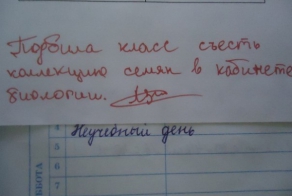 Подбила класс съесть
коллекцию семян в кабинете
биологии.
4 Неучебный день
5
6
7
СУББОТА